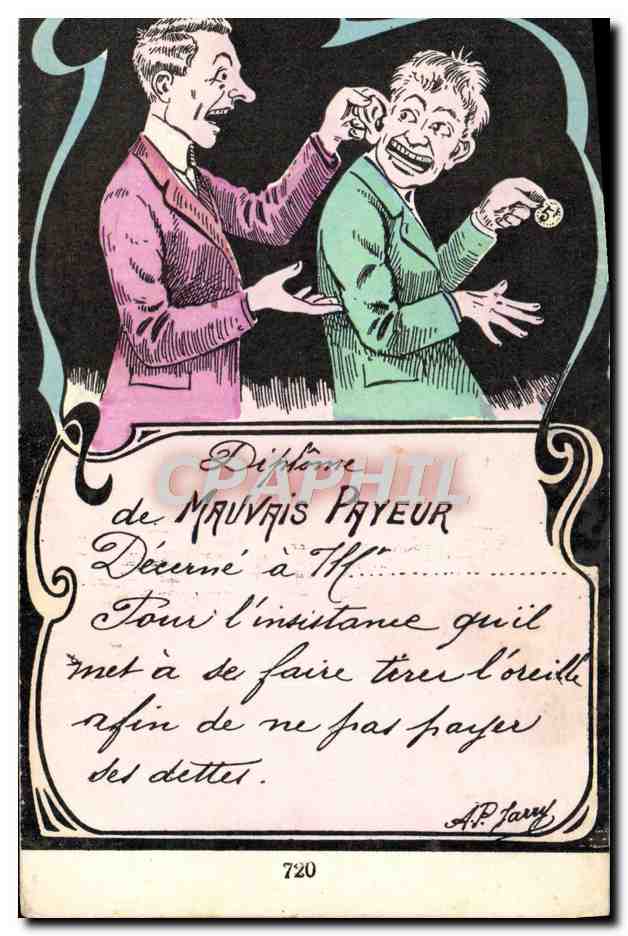 5f
Diplôme
de MAUVAIS PAYEUR
Décerné à Mr
Pour l'insistance qu'il
met à se faire tirer l'oreille
afin de ne pas payer
ses dettes.
A.P. Jarry
720
CPAPHIL